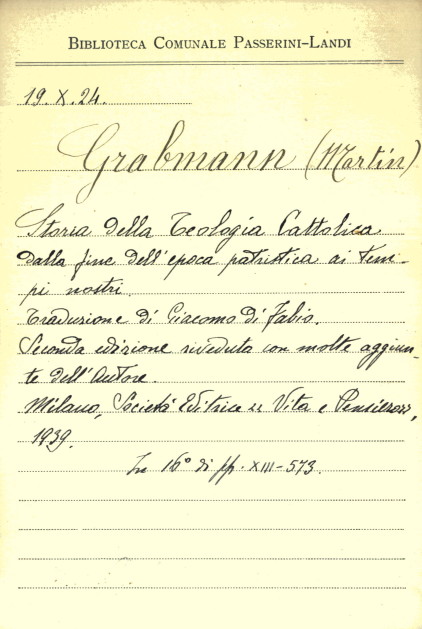 BIBLIOTECA COMUNALE PASSERINI-LANDI
19. X. 24.
Grabmann (Martin)
Storia della Teologia Cattolica
dalla fine dell'epoca patristica ai tem-
pi nostri.
Traduzione di Giacomo di Fabio.
Seconda edizione riveduta con molte aggiun-
te dell'Autore.
Milano, Società Editrice "Vita e Pensiero",
1939.
In 16° di pp. XIII-573.